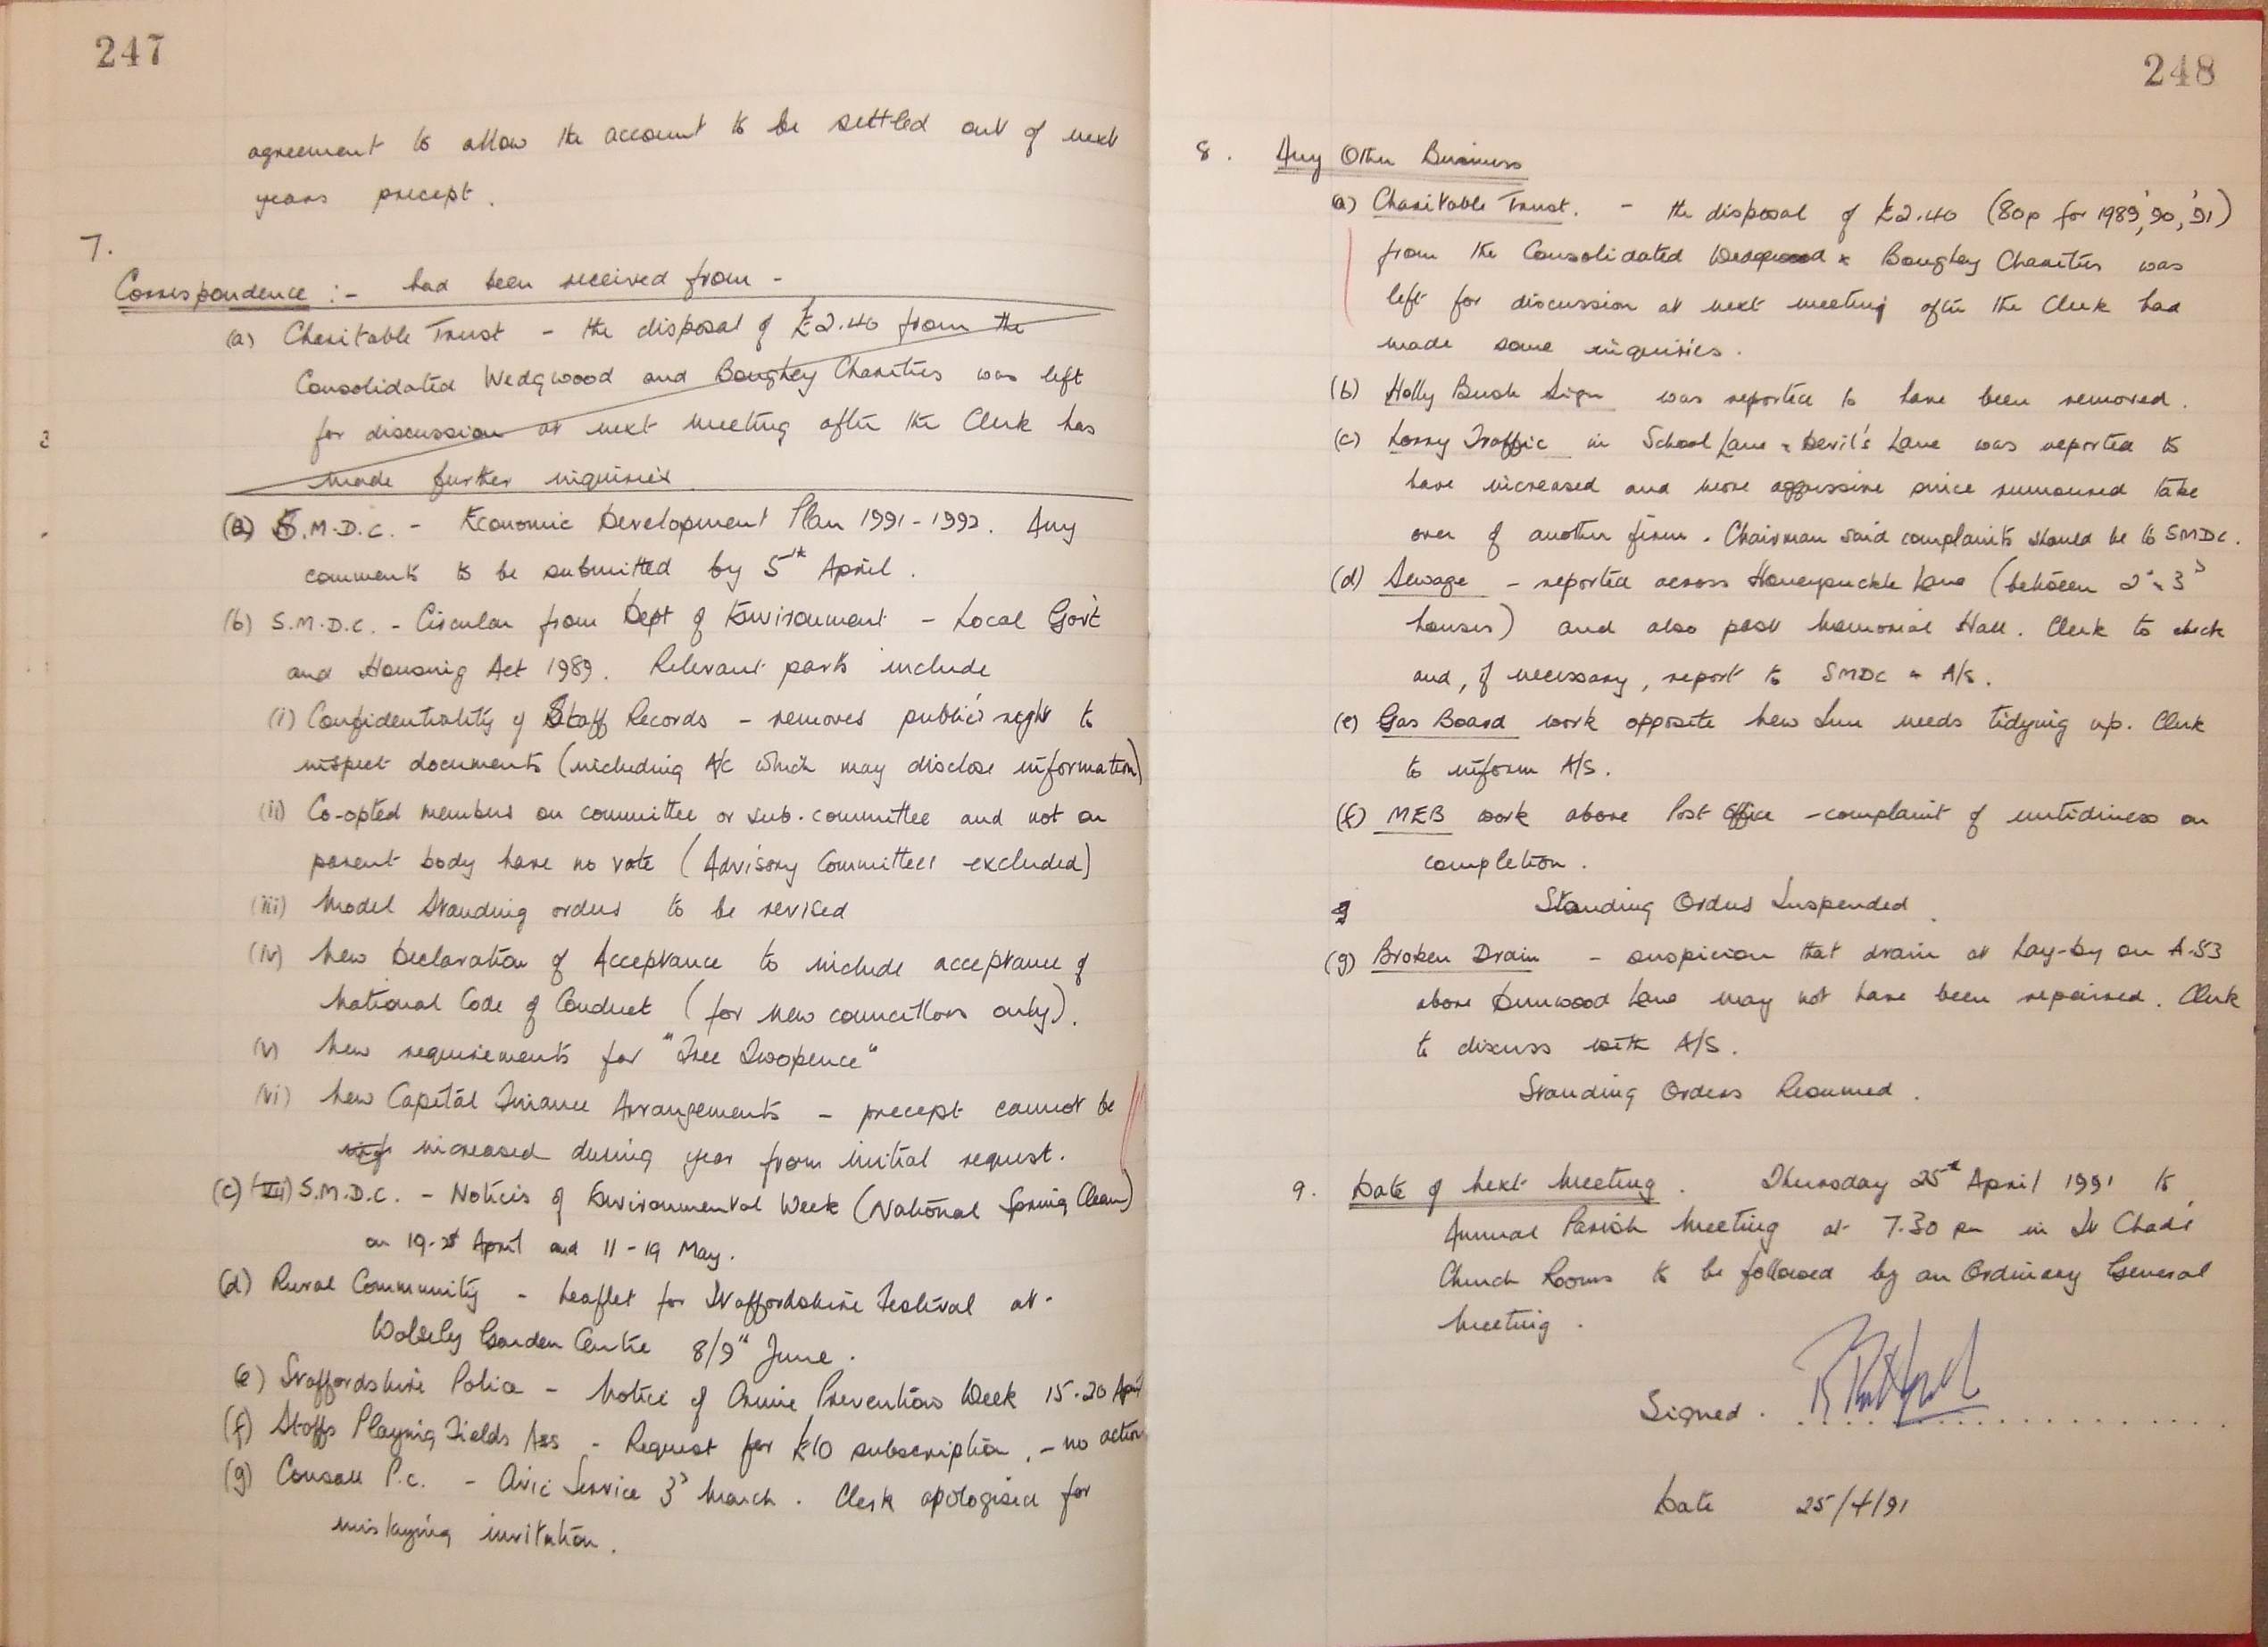 247
agreement to allow the account to be settled out of next
years precept.
7.
Correspondence :- had been received from -
(a) Charitable Trust - the disposal of £2.40 from the
Consolidated Wedgwood and Boughey Charities was left
for discussion at next meeting after the Clerk has
made further inquiries
(a) S.M.D.C. - Economic Development Plan 1991-1992. Any
comments to be submitted by 5th April.
(b) S.M.D.C. - Circular from Dept of Environment - Local Gov't
and Housing Act 1989. Relevant parts include
(i) Confidentiality of Staff Records - removes public's right to
inspect documents (including A/C which may disclose information)
(ii) Co-opted members on committee or sub-committee and not on
parent body have no vote (Advisory Committees excluded)
(iii) Model Standing orders to be revised
(iv) New Declaration of Acceptance to include acceptance of
National Code of Conduct (for new councillors only).
(v) New requirements for "Free Twopence"
(vi) New Capital Finance Arrangements - precept cannot be
increased during year from initial request.
(c) (vii) S.M.D.C. - Notices of Environmental Week (National Spring Clean)
on 19-28 April and 11-19 May.
(d) Rural Community - Leaflet for Staffordshire Festival at
Wolsely Garden Centre 8/9th June.
(e) Staffordshire Police - Notice of Crime Prevention Week 15-20 April
(f) Staffs Playing Fields Ass - Request for £10 subscription. - no action
(g) Consall P.C. - Civic Service 3rd March. Clerk apologised for
mislaying invitation.
248
8. Any Other Business
(a) Charitable Trust. - the disposal of £2.40 (80p for 1989, '90, '91)
from the Consolidated Wedgwood & Boughey Charities was
left for discussion at next meeting after the Clerk had
made some inquiries.
(b) Holly Bush Sign was reported to have been removed.
(c) Lorry Traffic in School Lane & Devil's Lane was reported to
have increased and more aggressive since rumoured take
over of another firm. Chairman said complaints should be to SMDC.
(d) Sewage - reported across Honeysuckle Lane (between 2nd & 3rd
houses) and also past Memorial Hall. Clerk to check
and, if necessary, report to SMDC & A/S.
(e) Gas Board work opposite New Inn needs tidying up. Clerk
to inform A/S.
(f) MEB work above Post Office - complaint of untidiness on
completion.
Standing Orders Suspended.
(g) Broken Drain - suspicion that drain at Lay-by on A.53
above Dunwood Lane may not have been repaired. Clerk
to discuss with A/S.
Standing Orders Resumed.
9. Date of Next Meeting. Thursday 25th April 1991 to
Annual Parish Meeting at 7.30 pm in St Chad's
Church Rooms to be followed by an Ordinary General
Meeting.
Signed.
Date 25/4/91